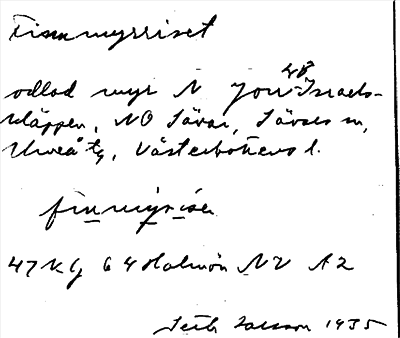 Finnmyrriset
odlad myr N Jon-Israels-
kläppen, NO Sävar, Sävars sn,
Umeå tg, Västerbottens l.
finmyrise
47 Kg 64 Holmön NV A2
1935